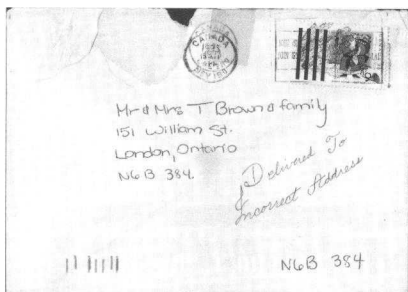 CANADA
Mr & Mrs T Brown & family
151 William St.
London, Ontario
N6B 3B4.
Delivered To
Incorrect Address
N6B 3B4